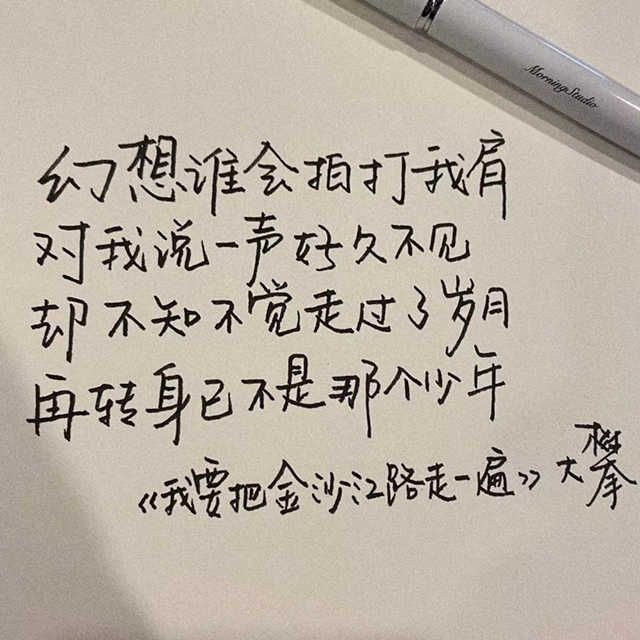 MorningStudio
幻想谁会拍打我肩
对我说一声好久不见
却不知不觉走过了岁月
再转身已不是那个少年
《我要把金沙江路走一遍》大